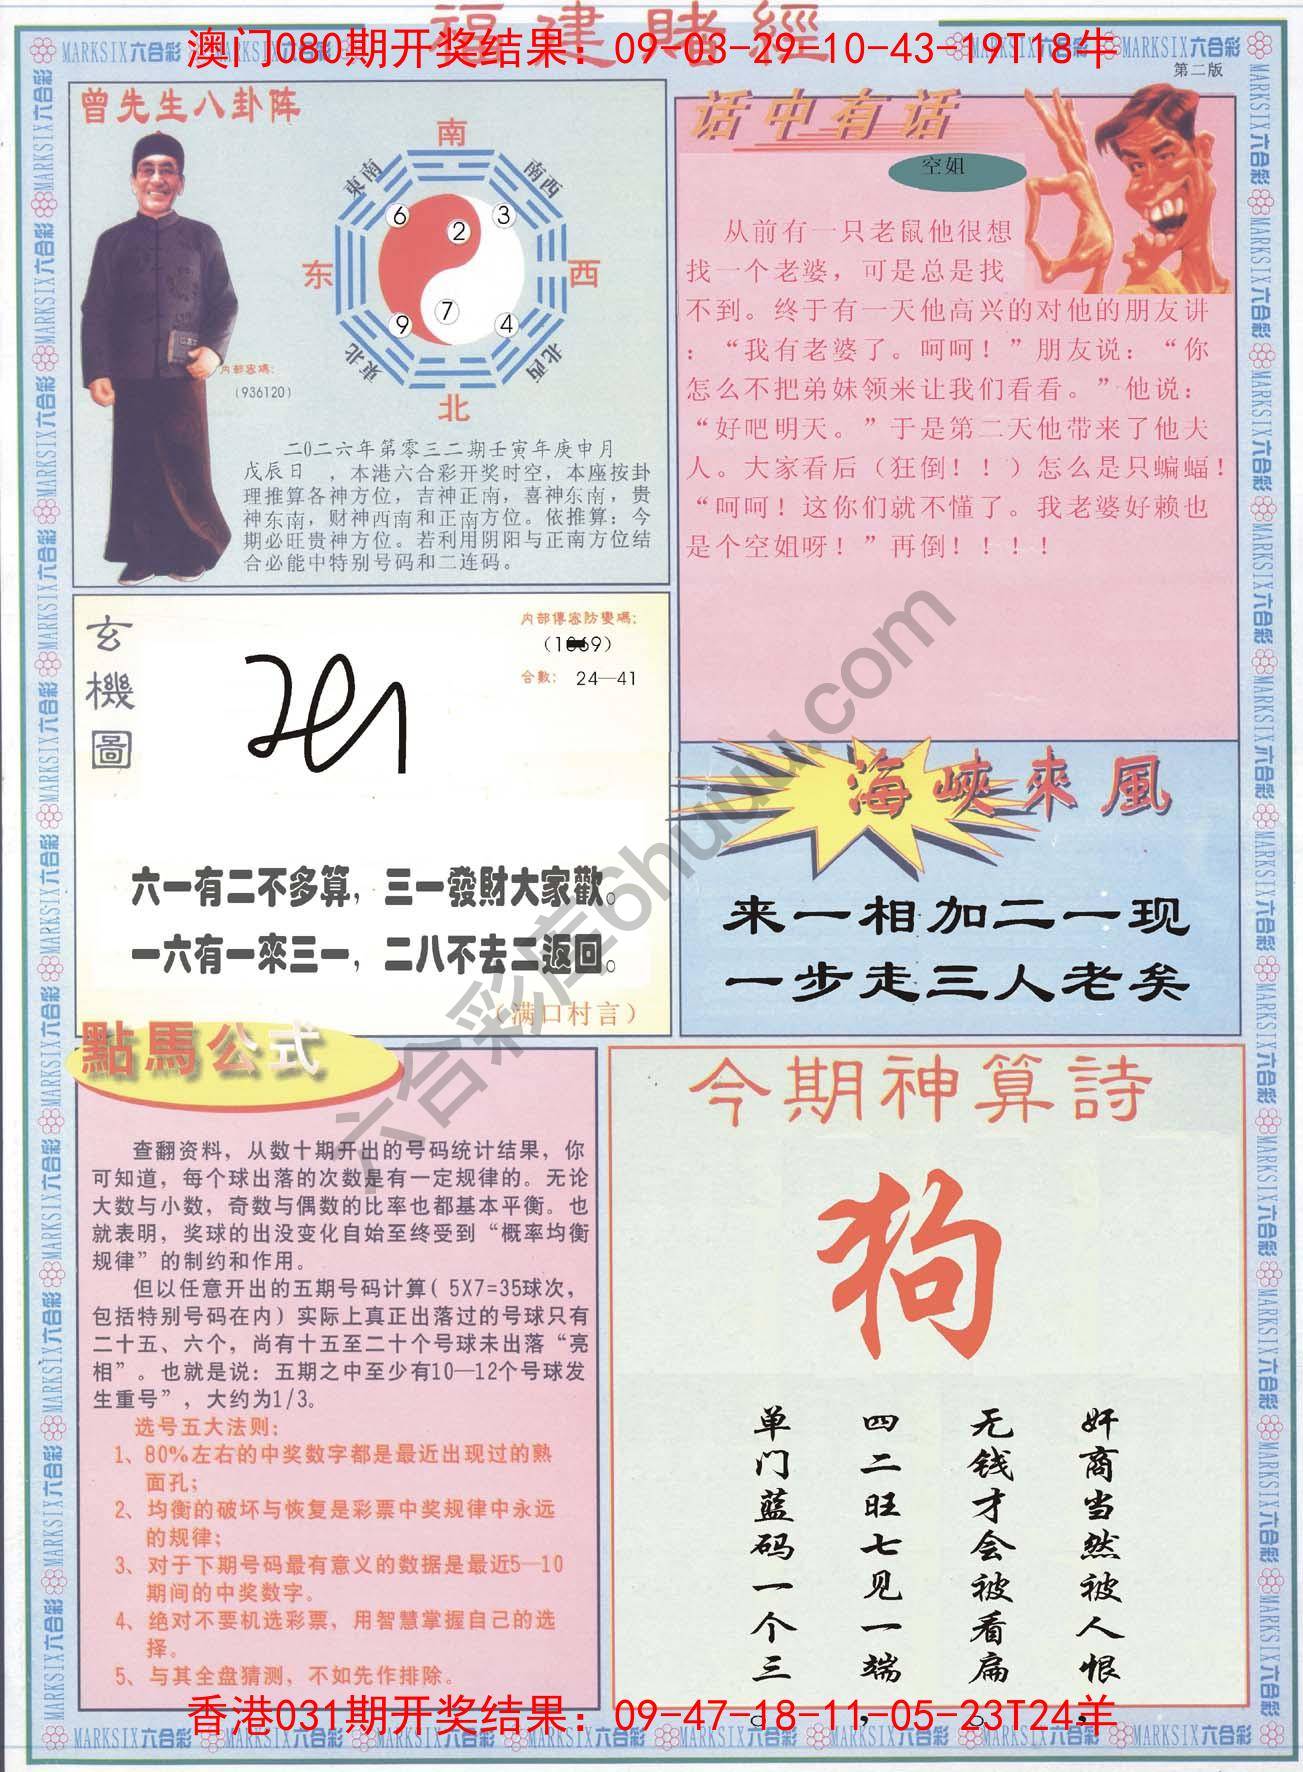 福建賭經
澳门080期开奖结果：09-03-29-10-43-19T18牛
MARKSIX六合彩
第二版
曾先生八卦阵
南
東南
南西
6
2
3
东
西
9
7
4
東北
北西
北
内部密碼：
(936120)
二0二六年第零三二期壬寅年庚申月
戊辰日，本港六合彩开奖时空，本座按卦
理推算各神方位，吉神正南，喜神东南，贵
神东南，财神西南和正南方位。依推算：今
期必旺贵神方位。若利用阴阳与正南方位结
合必能中特别号码和二连码。
话中有话
空姐
从前有一只老鼠他很想
找一个老婆，可是总是找
不到。终于有一天他高兴的对他的朋友讲
：“我有老婆了。呵呵！”朋友说：“你
怎么不把弟妹领来让我们看看。”他说：
“好吧明天。”于是第二天他带来了他夫
人。大家看后（狂倒！！）怎么是只蝙蝠！
“呵呵！这你们就不懂了。我老婆好赖也
是个空姐呀！”再倒！！！！
玄機圖
内部傳密防變碼：
合數： 24—41
六一有二不多算，三一發財大家歡。
一六有一來三一，二八不去二返回。
（满口村言）
海峽來風
来一相加二一现
一步走三人老矣
點馬公式
查翻资料，从数十期开出的号码统计结果，你
可知道，每个球出落的次数是有一定规律的。无论
大数与小数，奇数与偶数的比率也都基本平衡。也
就表明，奖球的出没变化自始至终受到“概率均衡
规律”的制约和作用。
但以任意开出的五期号码计算( 5X7=35球次，
包括特别号码在内）实际上真正出落过的号球只有
二十五、六个，尚有十五至二十个号球未出落“亮
相”。也就是说：五期之中至少有10—12个号球发
生重号”，大约为1/3。
选号五大法则：
1、80%左右的中奖数字都是最近出现过的熟
面孔；
2、均衡的破坏与恢复是彩票中奖规律中永远
的规律；
3、对于下期号码最有意义的数据是最近5—10
期间的中奖数字。
4、绝对不要机选彩票，用智慧掌握自己的选
择。
5、与其全盘猜测，不如先作排除。
今期神算詩
狗
奸商当然被人恨，
无钱才会被看扁。
四二旺七见一端，
单门蓝码一个三。
六合彩库6huuu.com
香港031期开奖结果：09-47-18-11-05-23T24羊
MARKSIX六合彩